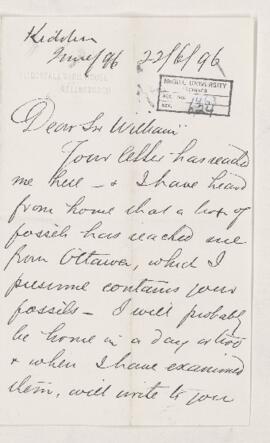 22/6/96
McGILL UNIVERSITY
ARCHIVES
ACC. NO.
REF.
Dear Sir William
Your letter has reached
me here - & I have heard
from home that a box of
fossils has reached me
from Ottawa, which I
presume contains your
fossils - I will probably
be home in a day or two
& when I have examined
them, will write to you